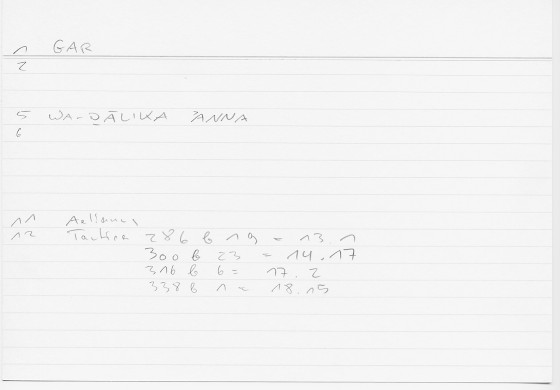 1 GAR
2
5 WA-ḎĀLIKA ʾANNA
6
11 Aelianus
12 Tactica 286 b 19 = 13.1
300 b 23 = 14.17
316 b 6 = 17.2
338 b 1 = 18.15